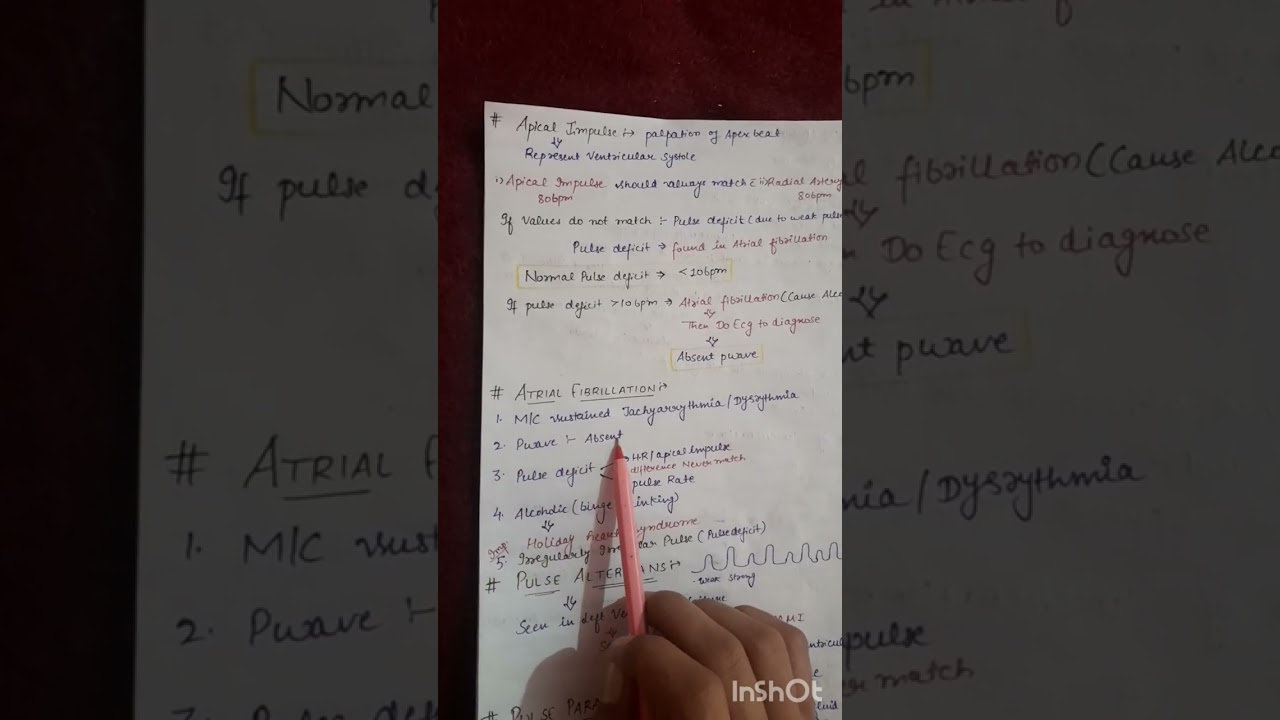 # Apical Impulse :→ palpation of Apex beat
Represent Ventricular Systole
i) Apical Impulse should always match c̄ ii) Radial Artery
80bpm 80bpm
If Values do not match :- Pulse deficit (due to weak pulse
Pulse deficit → found in Atrial fibrillation
Normal Pulse deficit → <10bpm
If pulse deficit >10bpm → Atrial fibrillation (Cause Alco
Then Do Ecg to diagnose
Absent pwave
# ATRIAL FIBRILLATION :→
1. M/C sustained Tachyarrythmia / Dysrythmia
2. Pwave :- Absent
3. Pulse deficit HR/apical Impulse
difference Never match
pulse Rate
4. Alcoholic (binge inking)
Imp Holiday Heart syndrome
5. Irregularly Irre ar Pulse (Pulse deficit)
# PULSE ALTER NS :→
weak strong
Seen in left Ve
M I
# PULSE PARA
InShOt